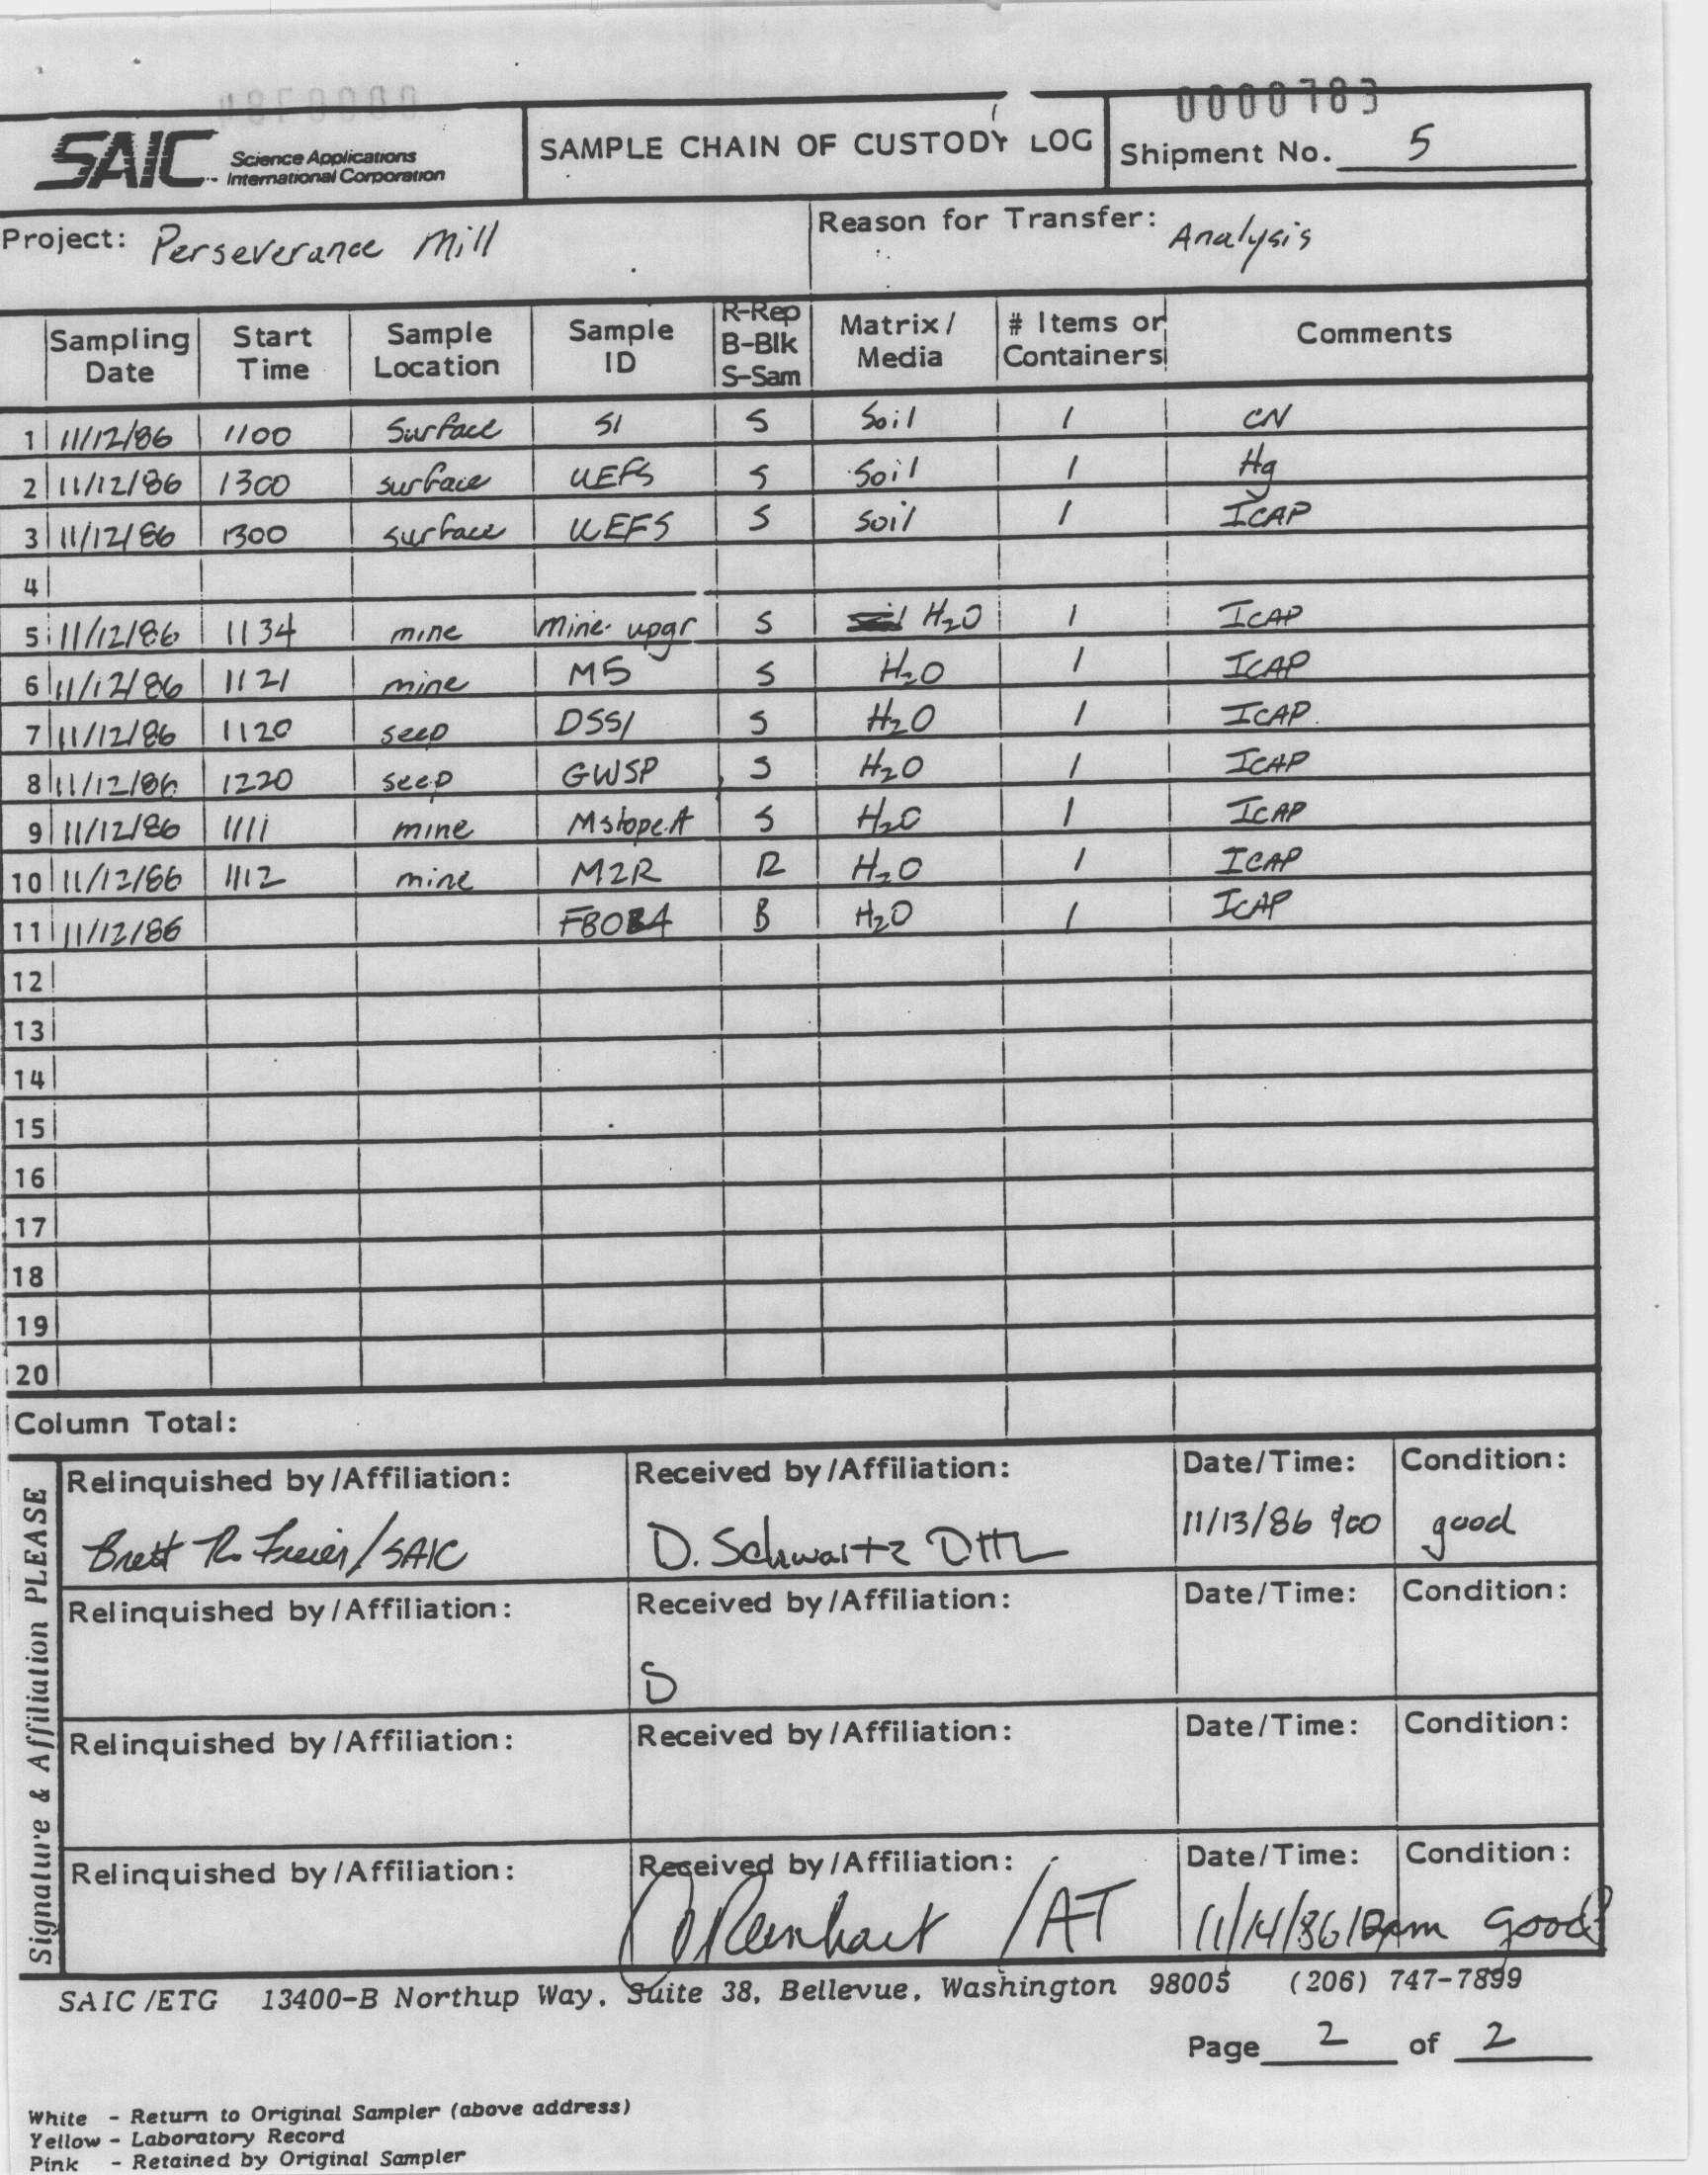 0000783
SAIC Science Applications International Corporation
SAMPLE CHAIN OF CUSTODY LOG
Shipment No. 5
Project: Perseverance Mill
Reason for Transfer: Analysis
Sampling Date | Start Time | Sample Location | Sample ID | R-Rep B-Blk S-Sam | Matrix/Media | # Items or Containers | Comments
1 | 11/12/86 | 1100 | Surface | S1 | S | Soil | 1 | CN
2 | 11/12/86 | 1300 | surface | UEFS | S | Soil | 1 | Hg
3 | 11/12/86 | 1300 | surface | UEFS | S | Soil | 1 | ICAP
4
5 | 11/12/86 | 1134 | mine | mine upgr | S | H2O | 1 | ICAP
6 | 11/12/86 | 1121 | mine | M5 | S | H2O | 1 | ICAP
7 | 11/12/86 | 1120 | seep | DSS1 | S | H2O | 1 | ICAP
8 | 11/12/86 | 1220 | seep | GWSP | S | H2O | 1 | ICAP
9 | 11/12/86 | 1111 | mine | MslopeA | S | H2O | 1 | ICAP
10 | 11/12/86 | 1112 | mine | M2R | R | H2O | 1 | ICAP
11 | 11/12/86 | B | H2O | 1 | ICAP
12
13
14
15
16
17
18
19
20
Column Total:
Signature & Affiliation PLEASE
Relinquished by/Affiliation: | Received by/Affiliation: | Date/Time: | Condition:
Brett R. / SAIC | D. Schwartz | 11/13/86 900 | good
Relinquished by/Affiliation: | Received by/Affiliation: | Date/Time: | Condition:
D
Relinquished by/Affiliation: | Received by/Affiliation: | Date/Time: | Condition:
Relinquished by/Affiliation: | Received by/Affiliation: | Date/Time: | Condition:
Reinhart / AT | 11/14/86 | good
SAIC/ETG 13400-B Northup Way, Suite 38, Bellevue, Washington 98005 (206) 747-7899
Page 2 of 2
White - Return to Original Sampler (above address)
Yellow - Laboratory Record
Pink - Retained by Original Sampler